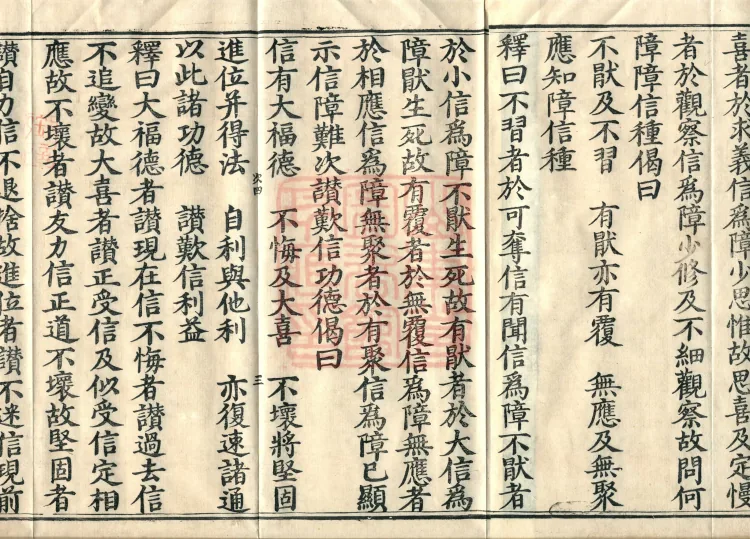 喜者於求義信為障少思惟故思喜及定慢
者於觀察信為障少修及不細觀察故問何
障障信種偈曰
不猒及不習　有猒亦有覆　無應及無聚
應知障信種
釋曰不習者於可奪信有聞信為障不猒者
於小信為障不猒生死故有猒者於大信為
障猒生死故有覆者於無覆信為障無應者
於相應信為障無聚者於有聚信為障已顯
示信障難次讃歎信功德偈曰
信有大福德　不悔及大喜　不壞將堅固
進位并得法　自利與他利　亦復速諸通
次四
三
以此諸功德　讃歎信利益
釋曰大福德者讃現在信不悔者讃過去信
不追變故大喜者讃正受信及似受信定相
應故不壞者讃友力信正道不壞故堅固者
讃自力信不退捨故進位者讃不迷信現前